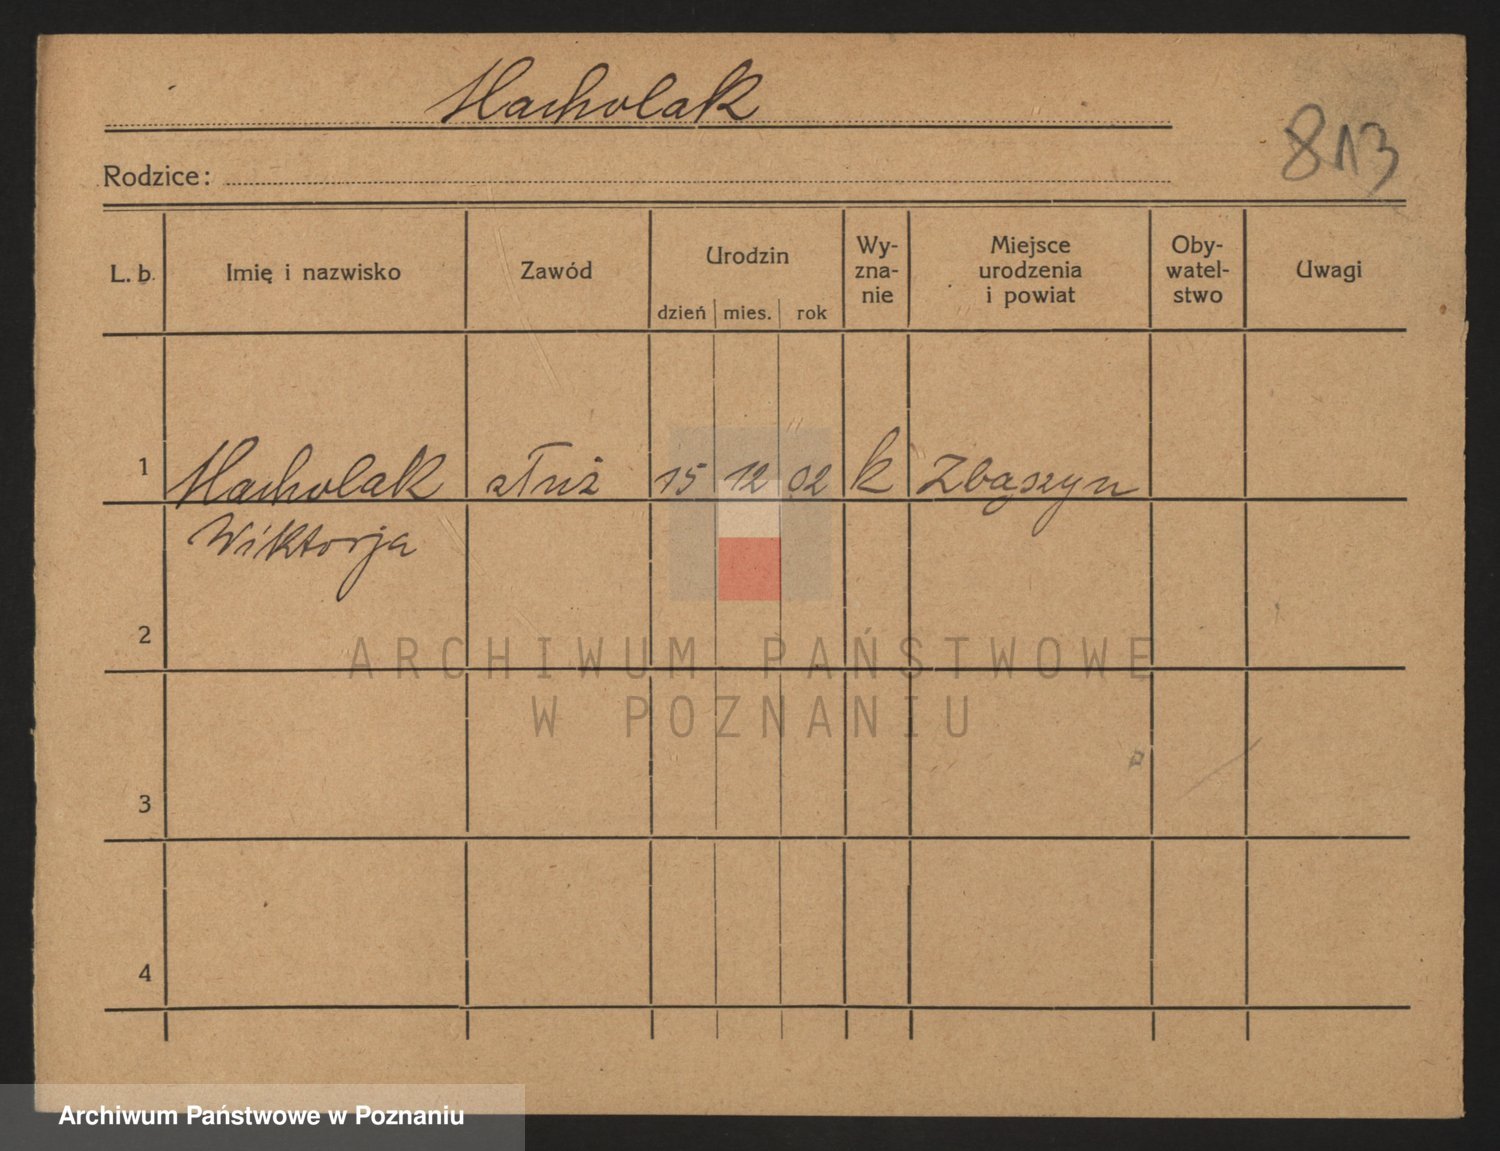 Macholak
813
Rodzice:
L. b.
Imię i nazwisko
Zawód
Urodzin
dzień
mies.
rok
Wy-
zna-
nie
Miejsce
urodzenia
i powiat
Oby-
watel-
stwo
Uwagi
1
Macholak
służ
15
12
02
k
Zbąszyn
Wiktorja
2
3
4
ARCHIWUM PAŃSTWOWE
W POZNANIU
Archiwum Państwowe w Poznaniu